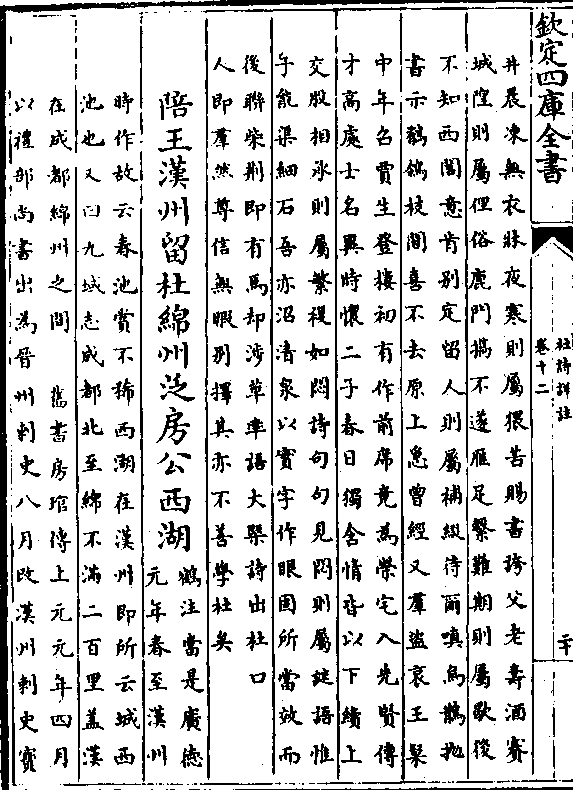 欽定四庫全書
杜詩詳註
卷十二
二十
井晨凍無衣牀夜寒則屬猥苦賜書誇父老壽酒賽
城隍則屬俚俗鹿門攜不遂雁足繫難期則屬歇後
不知西閣意肯别定留人則屬補綴待爾嗔烏鵲抛
書示鶺鴒枝間喜不去原上急曾經又羣盜哀王粲
中年召賈生登樓初有作前席竟為榮宅入先賢傳
才高處士名異時懷二子春日獨含情皆以下續上
交股相承則屬繁複如悶詩句句見悶則屬語惟
子能渠細石吾亦沼清泉以實字作眼固所當效而
後聯柴荆即有焉却涉草率語大槩詩出杜口
人即羣然尊信無暇别擇其亦不善學杜矣
陪王漢州留杜綿州泛房公西湖
鶴注當是廣德
元年春至漢州
時作故云春池賞不稀西湖在漢州即所云城西
池也又曰九域志成都北至綿不滿二百里蓋漢
在成都綿州之間 舊書房琯傳上元元年四月
以禮部尚書出為晉州刺史八月改漢州刺史寶